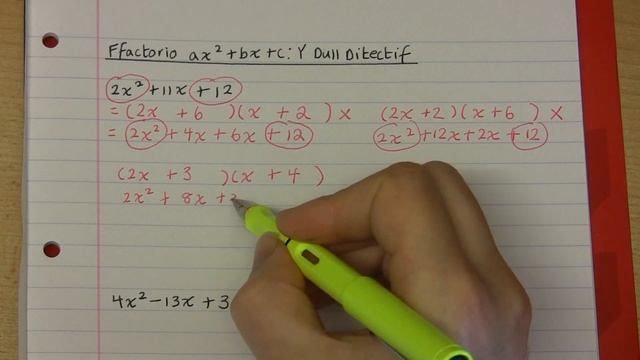 Ffactorio ax²+bx+c: Y Dull Ditectif
2x²+11x+12
=(2x +6 )(x +2 ) x (2x+2)(x+6 ) x
= 2x²+4x+6x+12 2x²+12x+2x+12
(2x +3 )(x +4 )
2x² + 8x +
4x²-13x+3